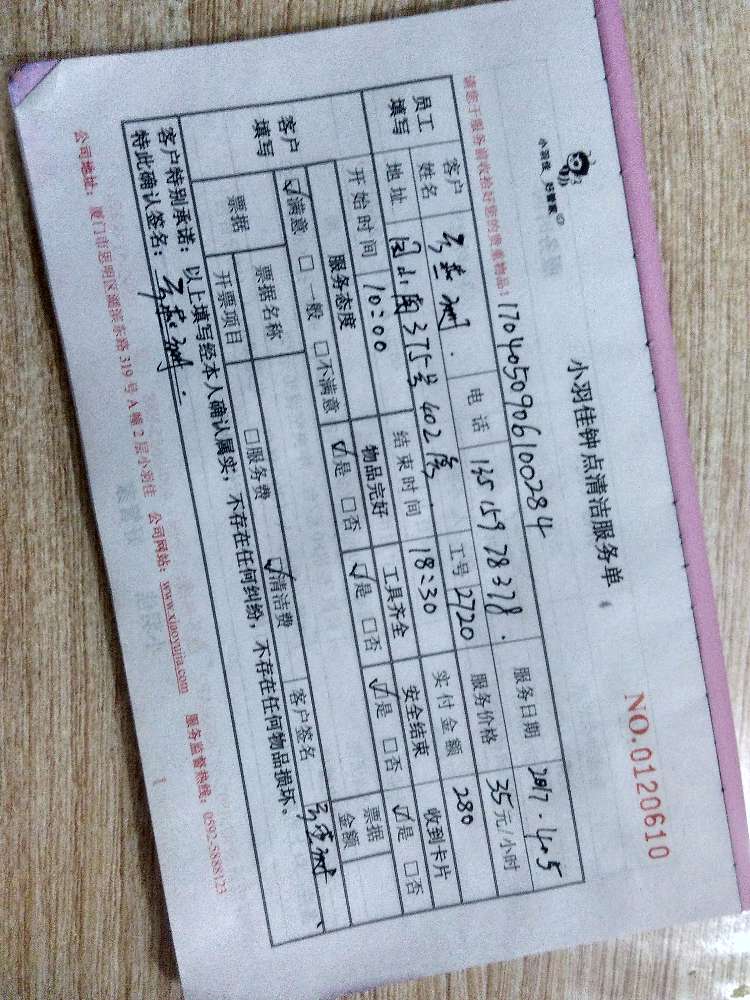 小羽佳 好管家
小羽佳钟点清洁服务单
NO.0120610
请您于服务前收拾好您的贵重物品！
1704050906100284
员工填写
客户姓名
电话 13515978378.
服务日期 2017.4.05
地址 375号402房
工号 2720
服务价格 35元/小时
开始时间 10:00
结束时间 18:30
实付金额 280
客户填写
服务态度 物品完好 工具齐全 安全结束 收到卡片
☑满意 □一般 □不满意 ☑是 □否 ☑是 □否 ☑是 □否 ☑是 □否
票据
票据名称
票据金额
开票项目 □服务费 ☑清洁费 客户签名
客户特别承诺：以上填写经本人确认属实，不存在任何纠纷，不存在任何物品损坏。
特此确认签名：
公司地址：厦门市思明区湖滨东路319号A幢2层小羽佳 公司网站：www.xiaoyujia.com 服务监督热线：0592-5888123